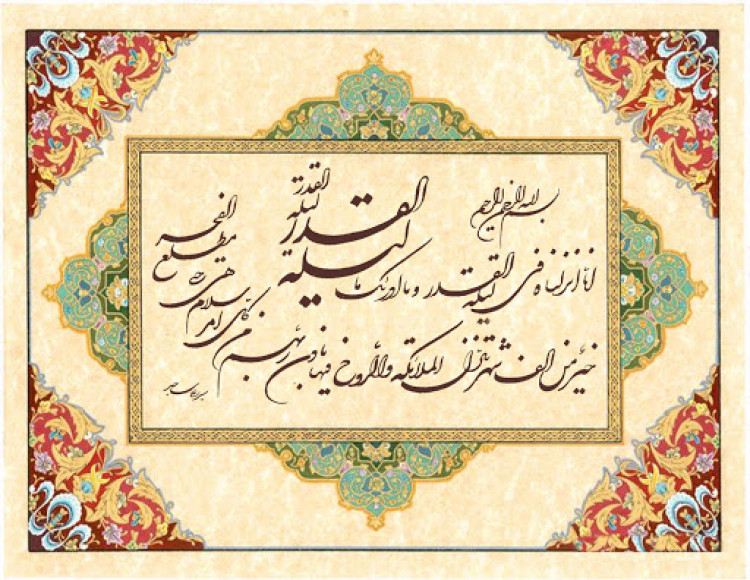 بسم الله الرحمن الرحیم
انا انزلناه فی لیلة القدر و ما ادرئک ما لیلة القدر لیلة القدر
خیر من الف شهر تنزل الملائکة والروح فیها باذن ربهم من کل امر سلام هی حتی مطلع الفجر